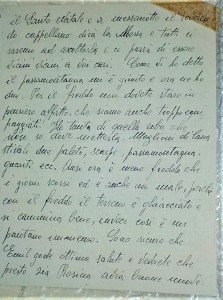 il Santo Natale e a mezzanotte il reverendo
cappellano dirà la Messa e tutti ci
saremo ad ascoltarla e ci parrà di essere
vicini vicini a voi cari. Come vi ho detto
il passamontagna mi è giunto e ora ne ho
due. Per il freddo non dovete stare in
pensiero affatto, che siamo anche troppo equi
paggiati. Ho tanta di quella roba che
non so dove metterla. Maglioni di lana
stivali due paletò, scarpe passamontagna,
guanti ecc. Quasi ora è meno freddo che
i giorni scorsi ed è anche un male, perché
con il freddo il terreno è ghiacciato e
si cammina bene, invece così è un
pantano immenso. Sono sicuro che
Emil gode ottima salute e vedrete che
presto zia Rosina avrà buone nuove.